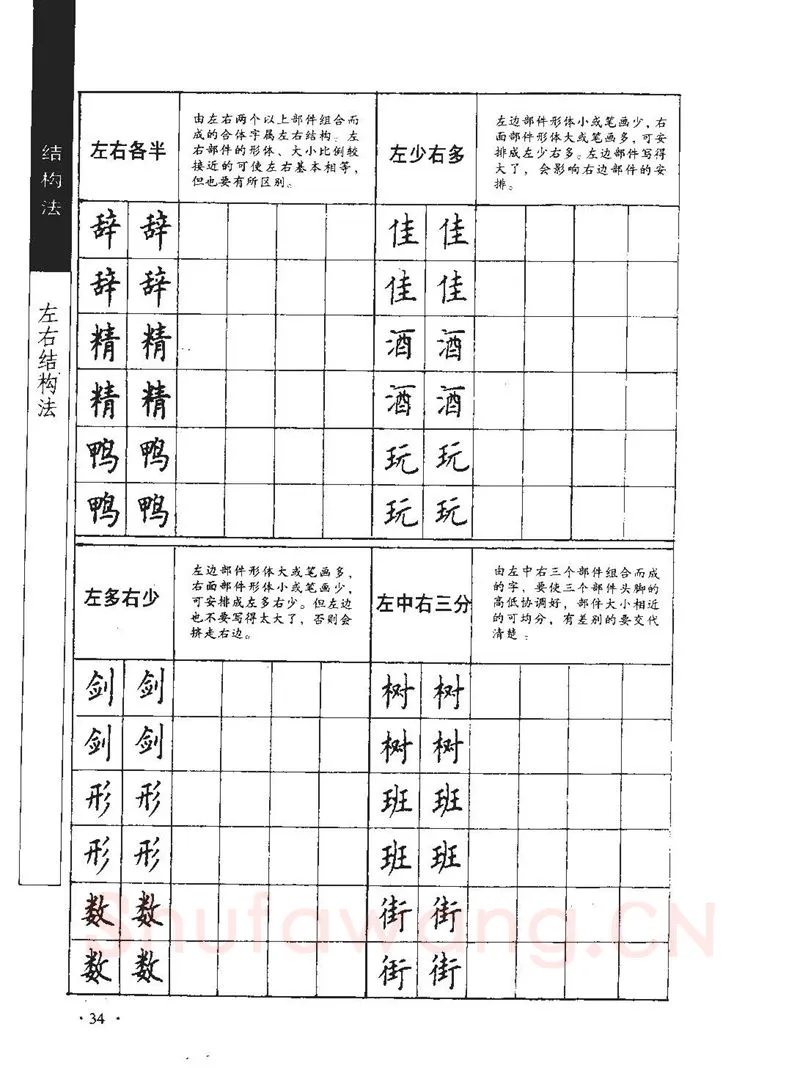 结构法
左右结构法
左右各半
由左右两个以上部件组合而
成的合体字属左右结构。左
右部件的形体、大小比例较
接近的可使左右基本相等,
但也要有所区别。
辞 辞
辞 辞
精 精
精 精
鸭 鸭
鸭 鸭
左少右多
左边部件形体小或笔画少,右
面部件形体大或笔画多,可安
排成左少右多。左边部件写得
大了,会影响右边部件的安
排。
佳 佳
佳 佳
酒 酒
酒 酒
玩 玩
玩 玩
左多右少
左边部件形体大或笔画多,
右面部件形体小或笔画少,
可安排成左多右少。但左边
也不要写得太大了,否则会
挤走右边。
剑 剑
剑 剑
形 形
形 形
数 数
数 数
左中右三分
由左中右三个部件组合而成
的字,要使三个部件头脚的
高低协调好,部件大小相近
的可均分,有差别的要交代
清楚:
树 树
树 树
班 班
班 班
街 街
街 街
Shufawang.CN
·34·